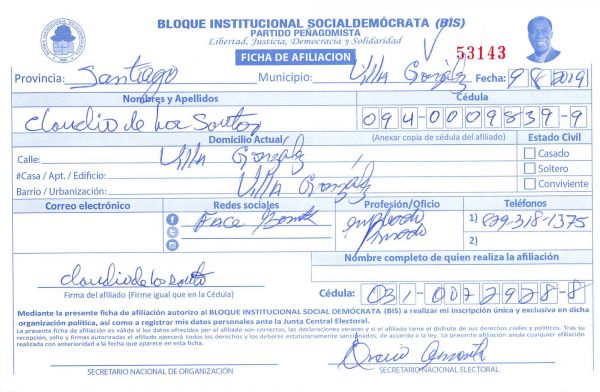 BLOQUE INSTITUCIONAL SOCIALDEMÓCRATA (BIS)
PARTIDO PEÑAGOMISTA
Libertad, Justicia, Democracia y Solidaridad
FICHA DE AFILIACION
53143
Provincia: Santiago Municipio: Villa González Fecha: 9/8/2019
Nombres y Apellidos Cédula
Claudio de Los Santos 094-0009839-9
Domicilio Actual (Anexar copia de cédula del afiliado) Estado Civil
Calle: Villa González Casado
#Casa / Apt. / Edificio: Soltero
Barrio / Urbanización: Villa González Conviviente
Correo electrónico Redes sociales Profesión/Oficio Teléfonos
Face Book empleado 1) 829-318-1375
2)
Nombre completo de quien realiza la afiliación
Claudio de los Santos
Firma del afiliado (Firme igual que en la Cédula) Cédula: 031-0072928-8
Mediante la presente ficha de afiliación autorizo al BLOQUE INSTITUCIONAL SOCIAL DEMÓCRATA (BIS) a realizar mi inscripción única y exclusiva en dicha
organización política, así como a registrar mis datos personales ante la Junta Central Electoral.
La presente ficha de afiliación es válida si los datos ofrecidos por el afiliado son correctos, las declaraciones veraces y si el afiliado tiene el disfrute de sus derechos civiles y políticos. Tras su
recepción, sello y firmas autorizadas el afiliado ejercerá todos los derechos y los deberes estatutariamente sancionados, de acuerdo a la ley. La presente afiliación anula cualquier afiliación
realizada con anterioridad a la fecha que aparece en esta ficha.
SECRETARIO NACIONAL DE ORGANIZACIÓN SECRETARIO NACIONAL ELECTORAL